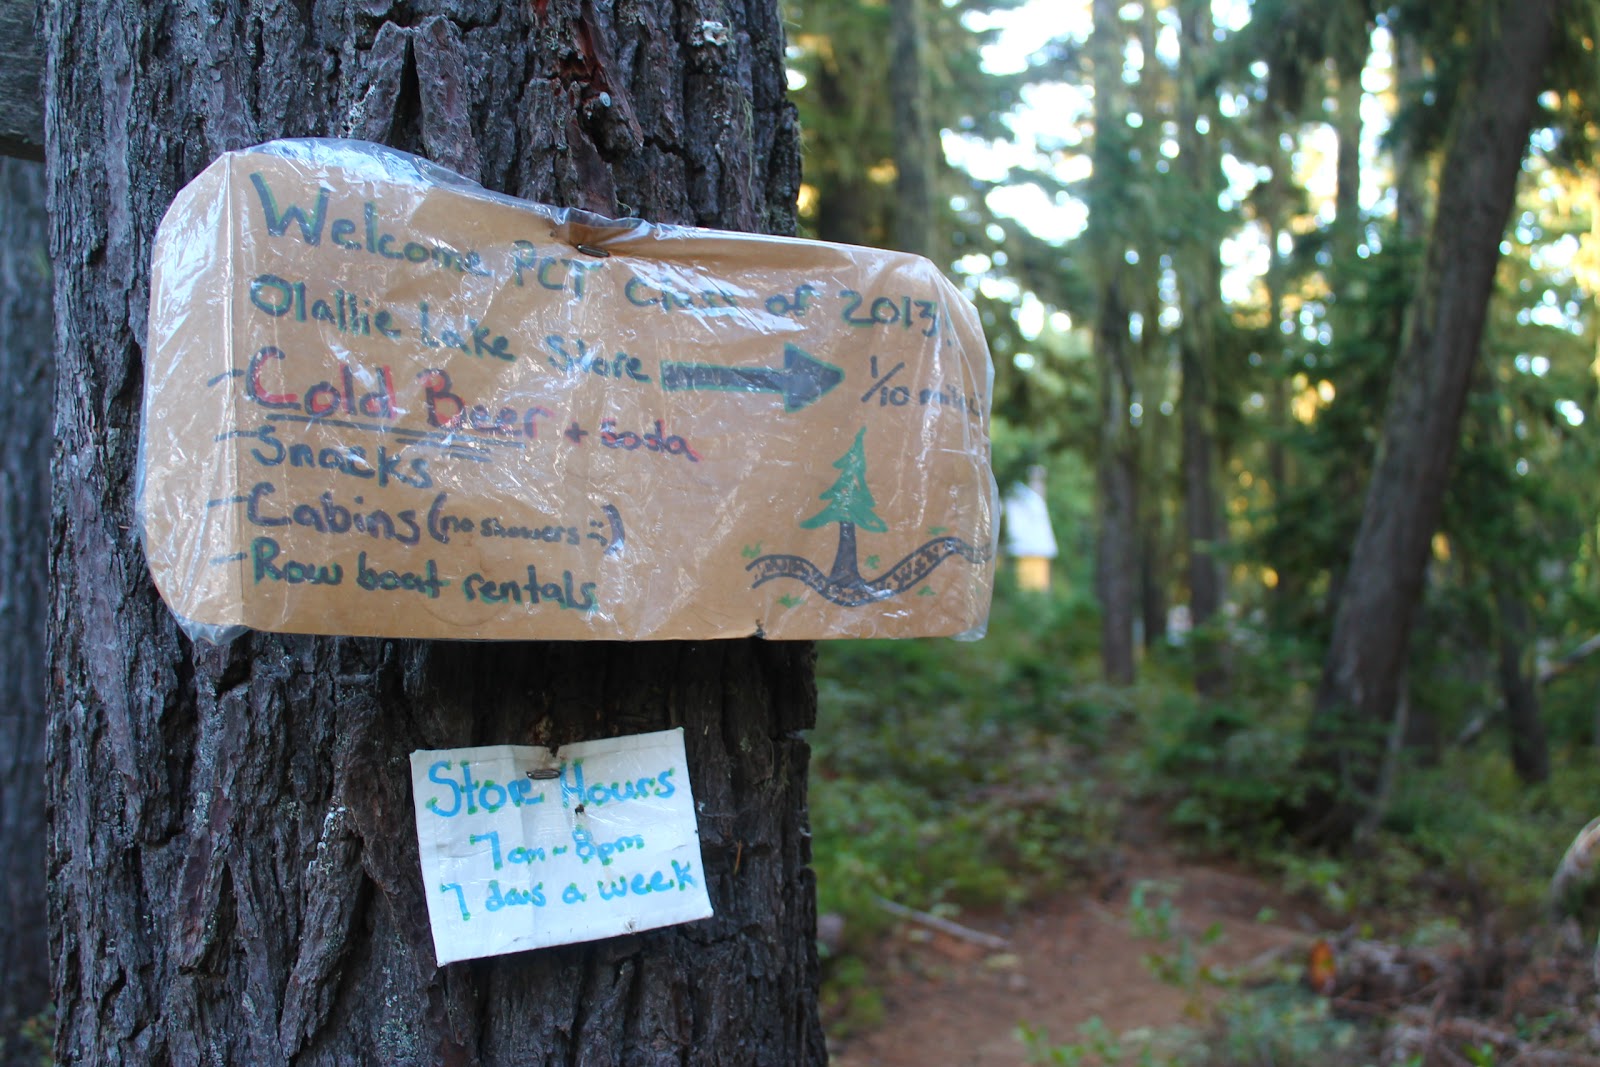 Welcome PCT Class of 2013!
Olallie Lake Store → 1/10 mile
- Cold Beer + Soda
- Snacks
- Cabins (no showers :-()
- Row boat rentals
Store Hours
7am - 8pm
7 days a week